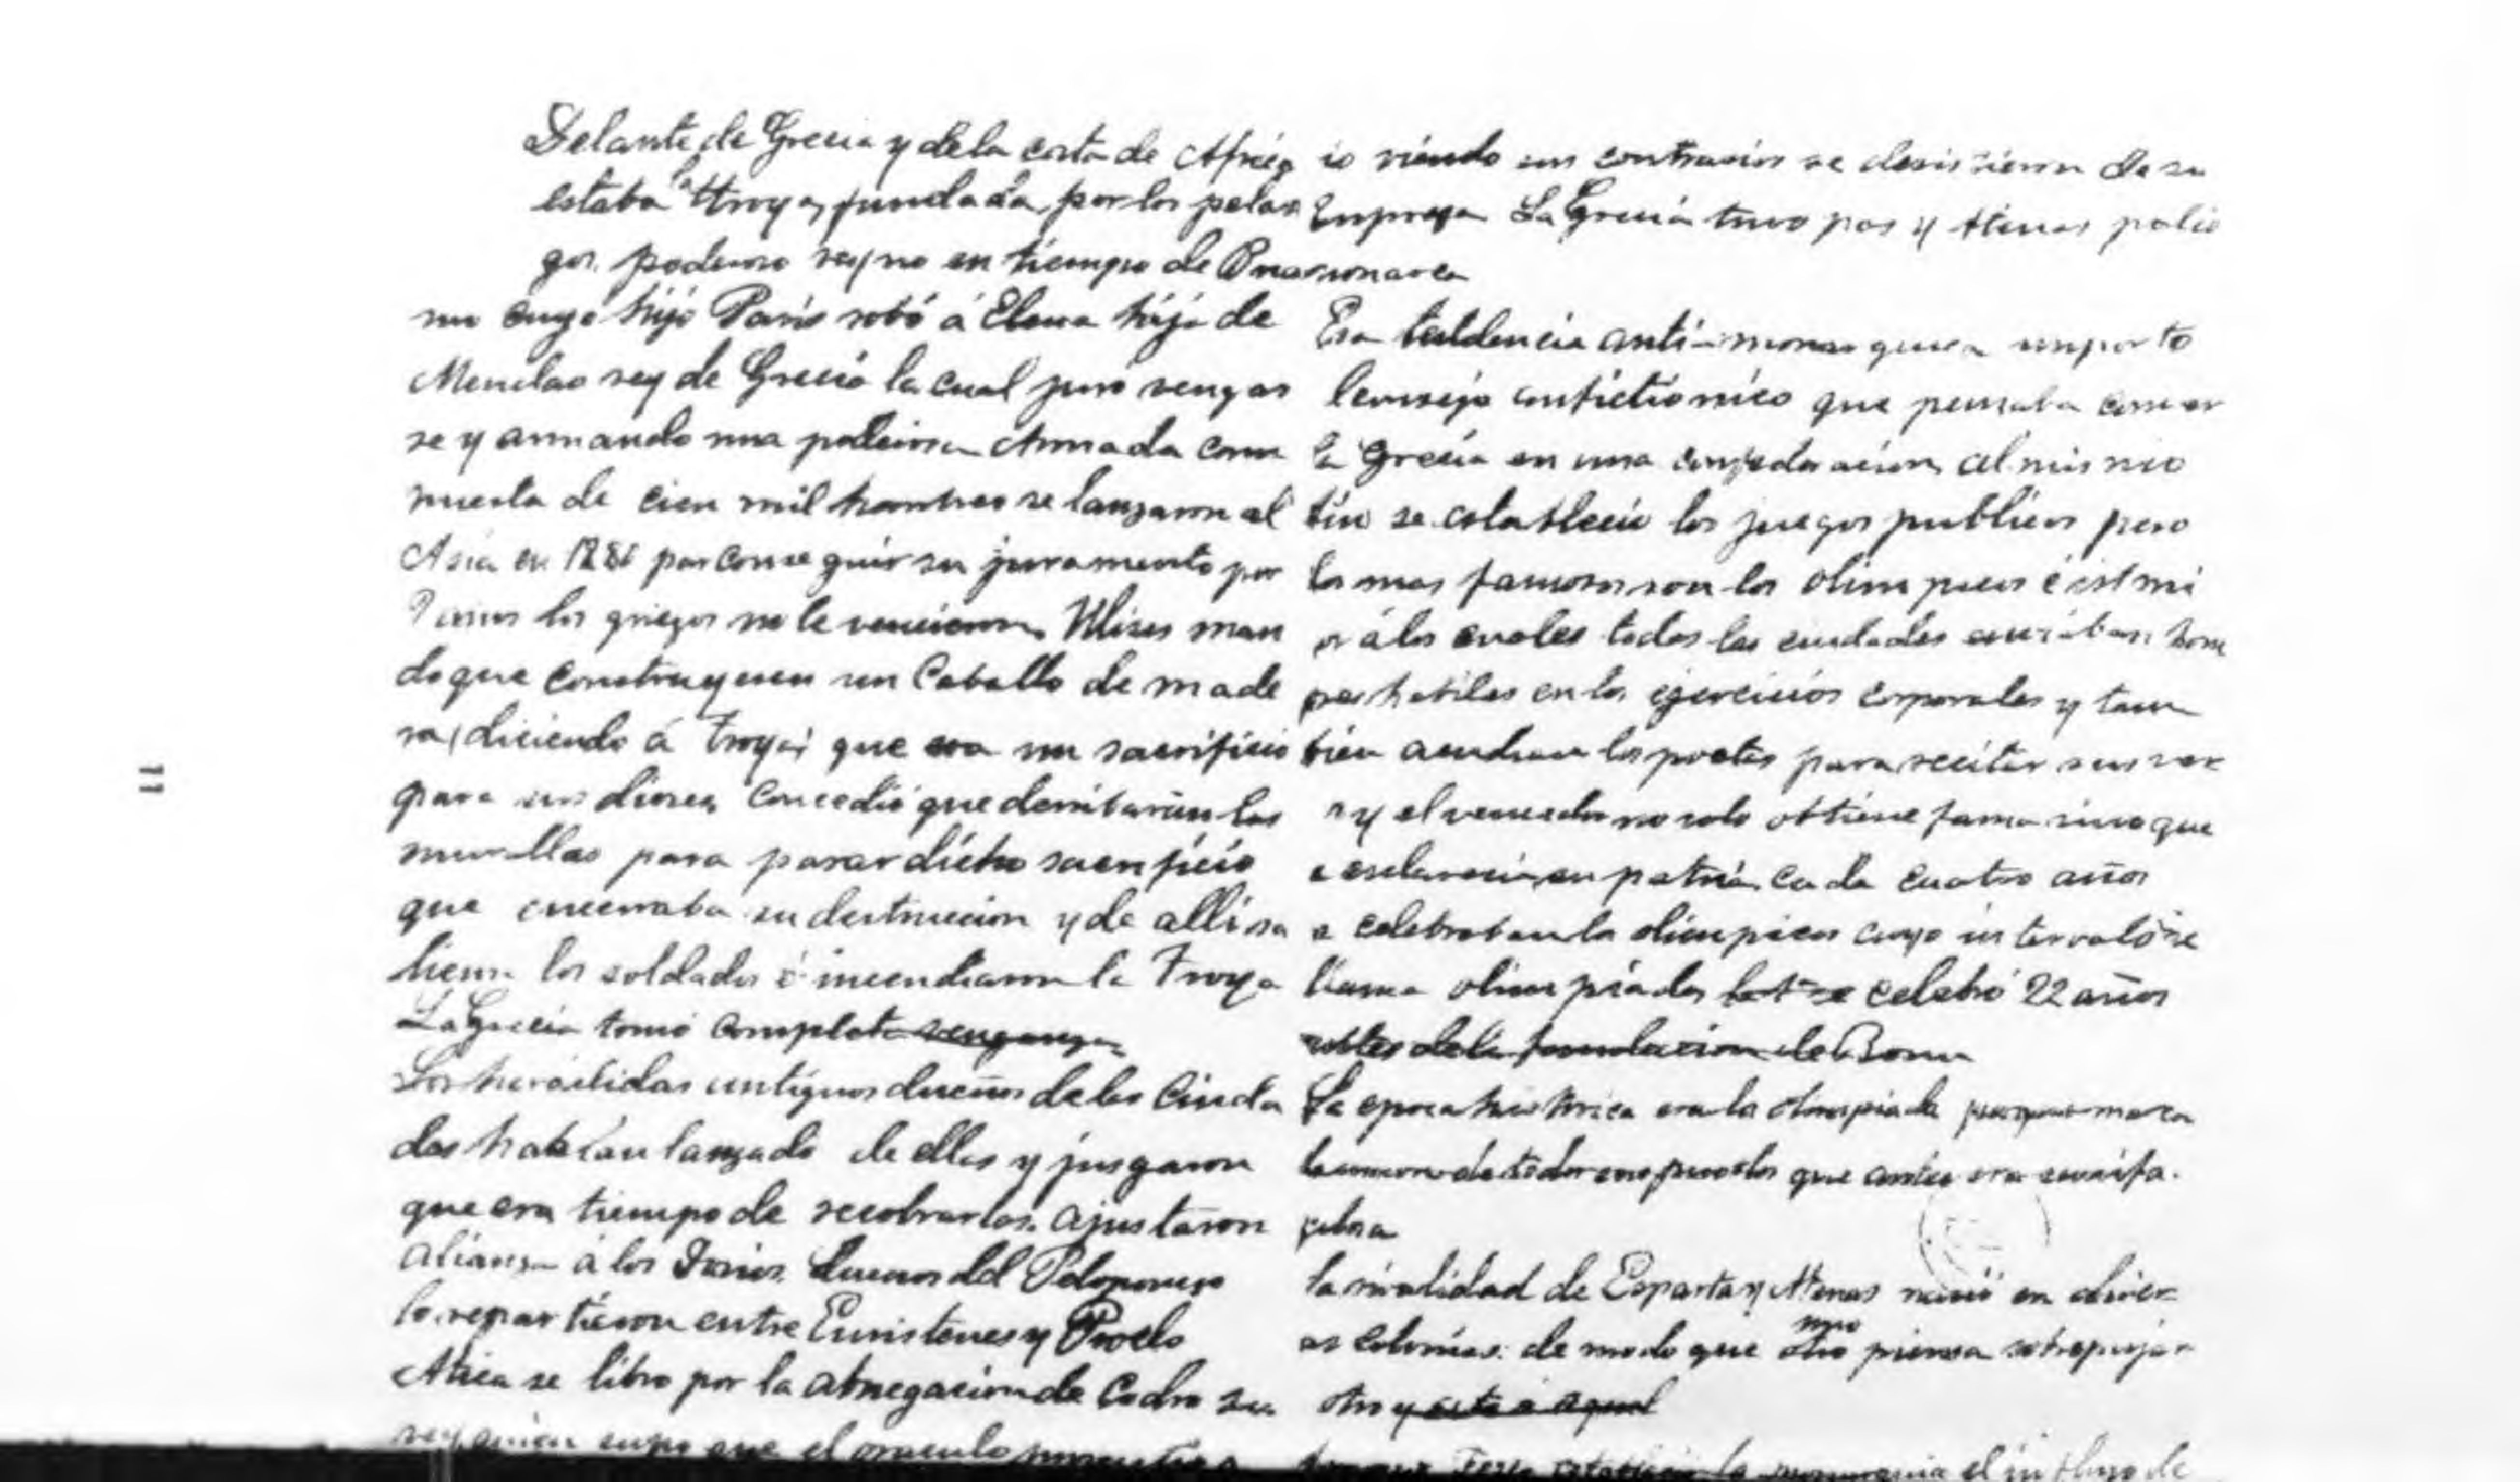 Delante de Grecia y de la costa de Africa
estaba la Troya, fundada por los pelas
gos, poderoso reyno en tiempo de
cuyo hijo Paris robó á Elena hija de
Menelao rey de Grecia la cual juró vengar
se y armando una poderosa Armada com
puesta de cien mil hombres se lanzaron al
Asia en por conseguir su juramento por
los griegos no le vencieron. Ulises man
do que construyesen un Caballo de made
ra, diciendo á Troya que era un sacrificio
para sus dioses, concedió que derribarán las
murallas para pasar dicho sacrificio
que encerraba su destruccion y de alli sa
lieron los soldados é incendiaron la Troya
La Grecia tomó completa venganza
Los heraclidas antiguos dueños de las Ciuda
des habian lanzado de ellas y jusgaron
que era tiempo de recobrarlas. Ajustaron
alianza á los Dorios. Duenos del Peloponeso
lo repartieron entre Euristenes y Proclo
Atica se libro por la abnegacion de Codro su
rey quien supo que el oraculo
io viendo sus contrarios se desistieron de su
Empresa La Grecia tuvo pas y Atenas
Esa tendencia anti-
consejo anfictionico que pensaba
la Grecia en una confederacion, al mismo
fin se establecio los juegos publicos pero
los mas famosos son los olimpicos é istmi
á los cuales todas las ciudades enviaban hom
bres habiles en los ejercicios corporales y tam
bien acudian los poetas para recitar sus ver
y el vencedor no solo obtiene fama sino que
esclarecia su patria. Cada cuatro años
se celebraban los olimpicos cuyo intervalo se
llama olimpiadas celebró 22 años
antes de la fundacion de Roma
La epoca historica era la olimpiada porque marca
la union de todos sus pueblos que antes era
la rivalidad de Esparta y Atenas nació en diver
as colonias: de modo que uno otro piensa sobrepujar
otro y este a aquel
la monarquia el influjo de